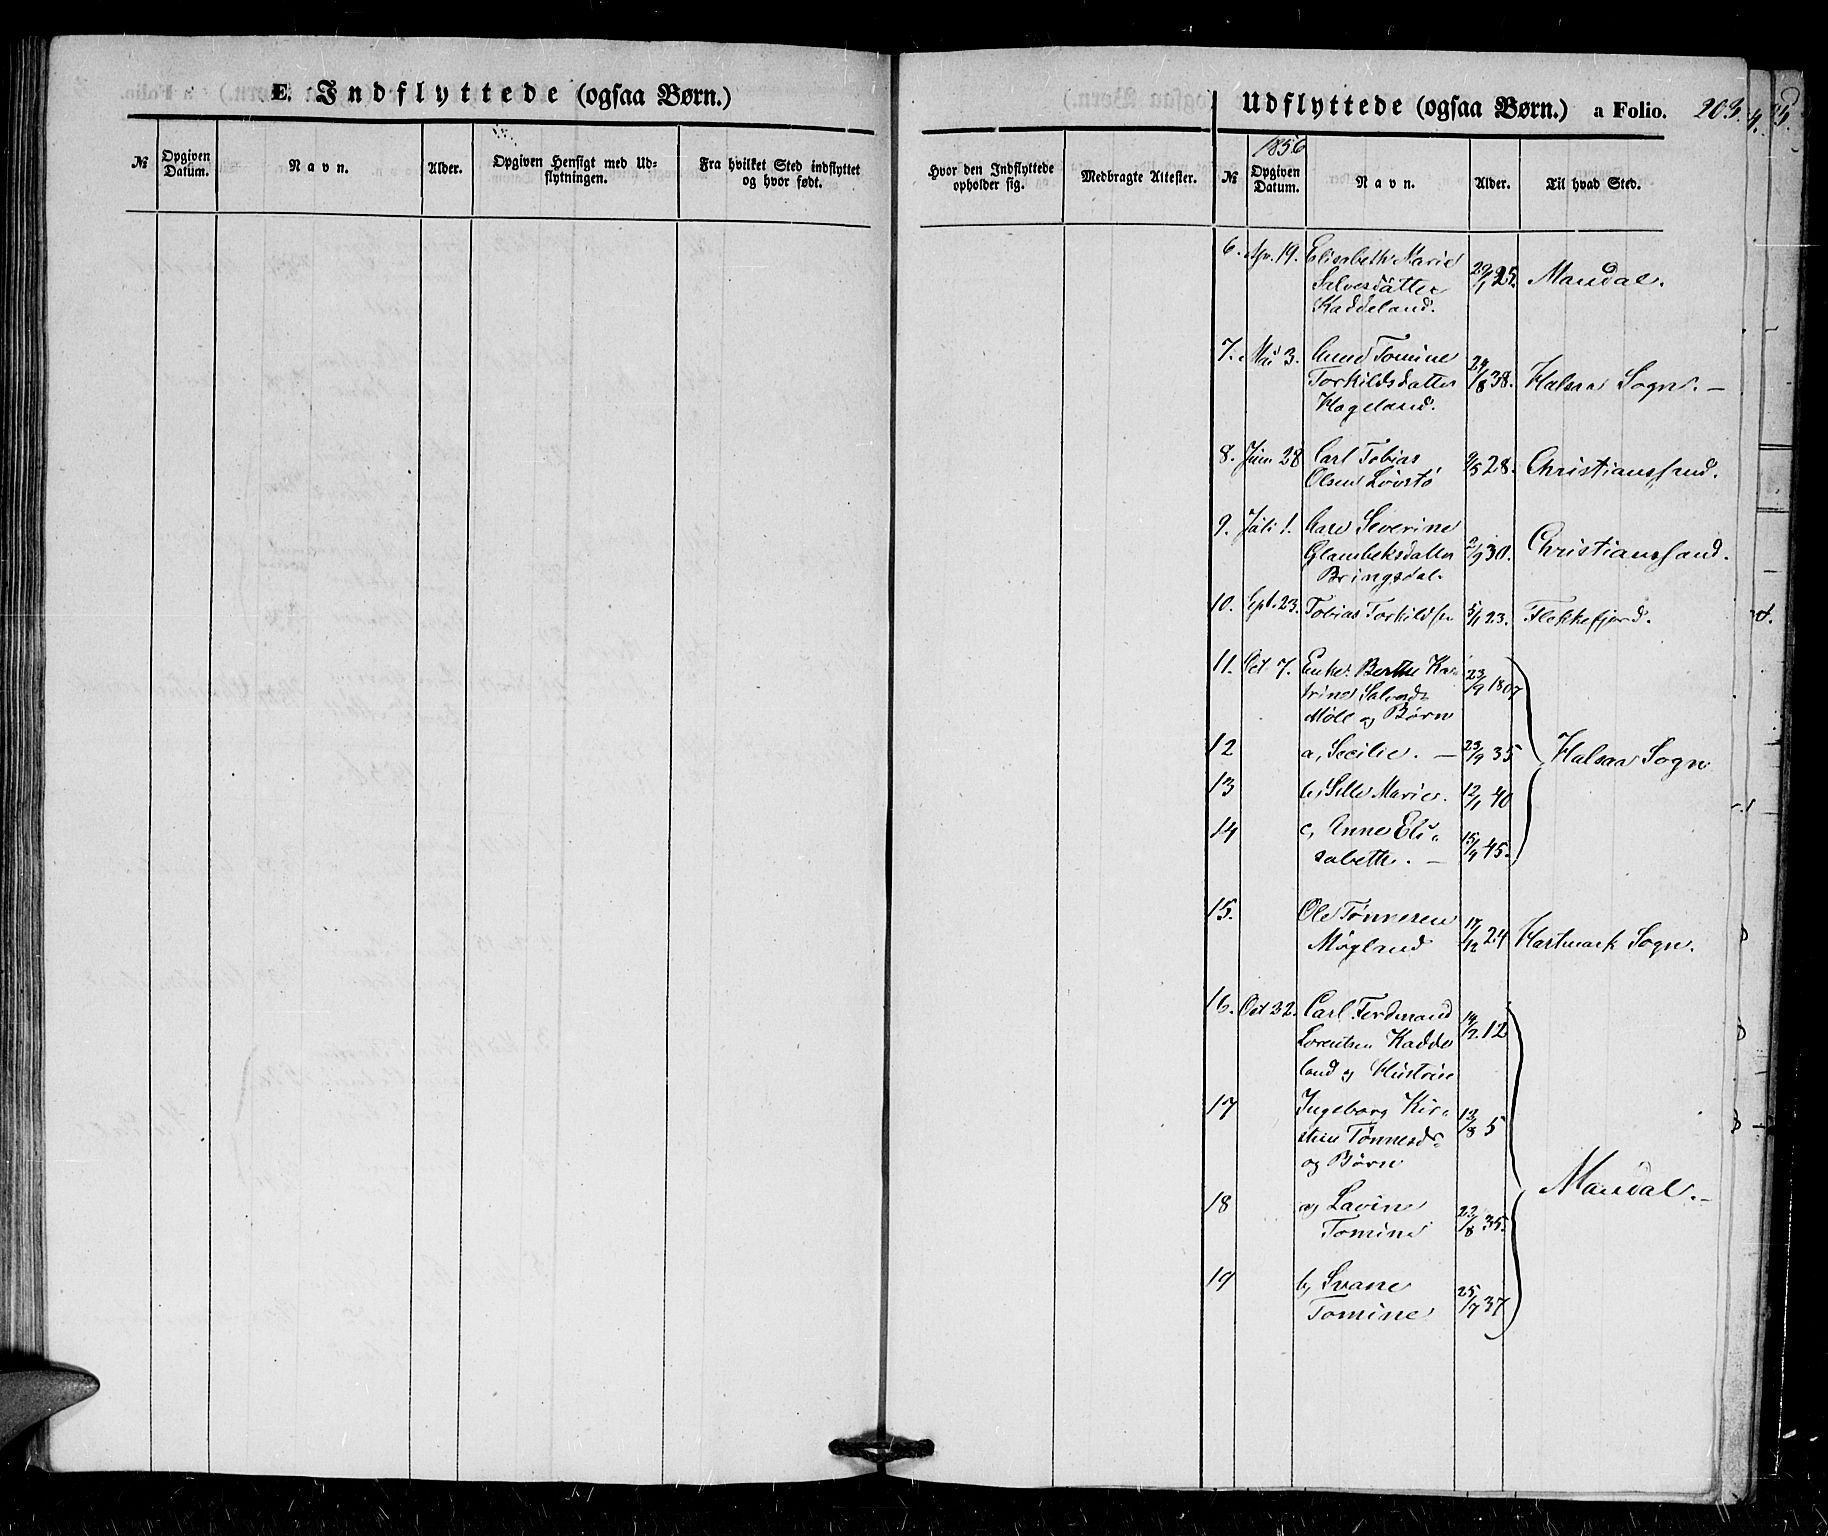 E. Indflyttede (ogsaa Børn.)
№
Opgiven Datum.
Navn.
Alder.
Opgiven Hensigt med Ud-
flytningen.
Fra hvilket Sted indflyttet
og hvor født.
Hvor den Indflyttede
opholder sig.
Medbragte Attester.
Udflyttede (ogsaa Børn.) a Folio. 203.
1856
№
Opgiven Datum.
Navn.
Alder.
Til hvad Sted.
6. Apr. 19. Elisabeth Marie 29/1 25. Mandal.
Salvesdatter
Kaddeland.
7. Mai 3. Anne Tomine 24/8 38. Halsaa Sogn. -
Torkildsdatter
Hageland.
8. Juni 28 Carl Tobias 9/5 28. Christianssand.
Olsen Lovstø
9. Juli 1. Severine 30. Christianssand.
Glambeksdatter
Bringsdal.
10. Spt. 23. Tobias Torkildsen 5/1 23. Flekkefjord.
11. Oct 7. Enke: Berthe Kat- 23/9 1807 Halsaa Sogn
trine Salvesd-
Møll og Børn
12 a, Secilie. - 23/9 35
13 b, Sille Marie. 12/1 40
14 c, Anne Eli- 15/9 45.
sabeth. -
15. Ole Tønnesen 17/12 24 Hartmark Sogn.
Møgland
16. Oct 22. Carl Ferdinand 14/2 12 Mandal. -
Lorentsen Kadde
land og Hustrue
17 Ingeborg Kir- 13/8 5
stine Tønnesd-
og Børn
18 a, Lavine 22/8 35.
Tomine
19 b, Svane 25/7 37
Tomine